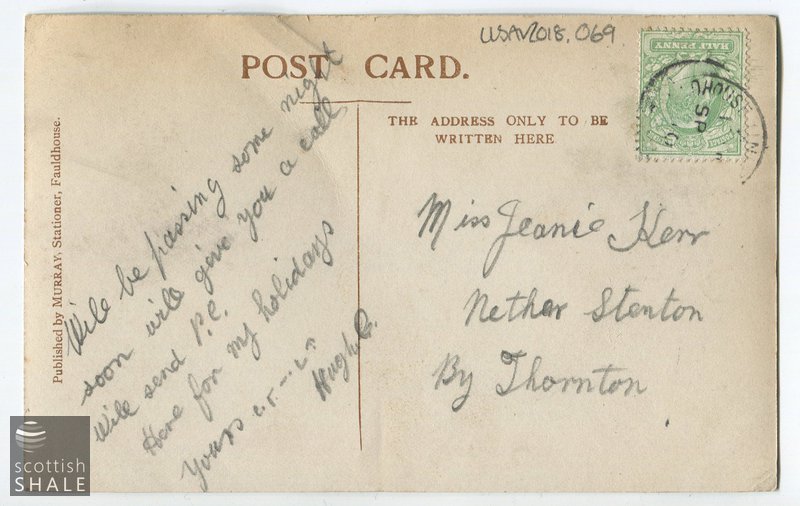 LVSAV2018.069
POST CARD.
THE ADDRESS ONLY TO BE
WRITTEN HERE
HALF PENNY
Published by MURRAY, Stationer, Fauldhouse.
Will be passing some night
soon will give you a call
Will send P.C.
Here for my holidays
Yours
Hugh C.
Miss Jeanie Kerr
Nether Stenton
By Thornton
scottish
SHALE